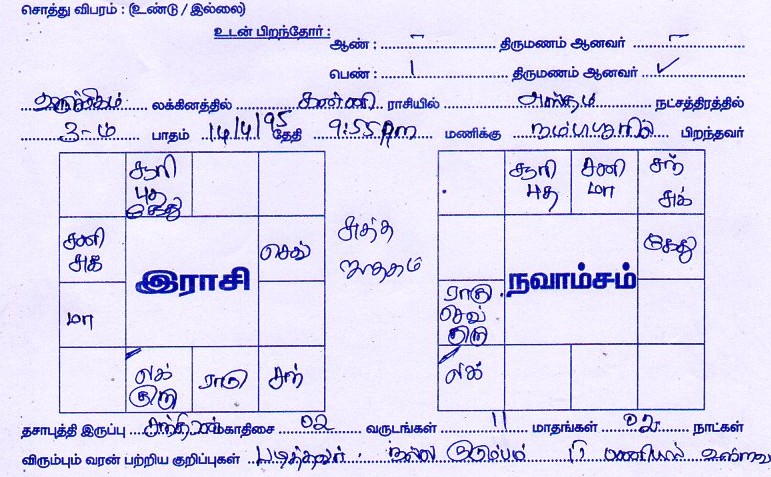 சொத்து விபரம் : (உண்டு / இல்லை)
உடன் பிறந்தோர் :
ஆண் : – திருமணம் ஆனவர் –
பெண் : 1 திருமணம் ஆனவர் ✓
விருச்சிகம் லக்கினத்தில் கன்னி ராசியில் அஸ்தம் நட்சத்திரத்தில்
3-ம் பாதம் 14/4/95 தேதி 9:55 Pm மணிக்கு பிறந்தவர்
சூரி புத கேது
சனி சுக்
செவ்
இராசி
மா
லக் குரு
ராகு
சந்
சுத்த ஜாதகம்
சூரி புத
சனி மா
சந் சுக்
கேது
நவாம்சம்
ராகு செவ் குரு
லக்
தசாபுத்தி இருப்பு சந்திரன் மகாதிசை 02 வருடங்கள் 11 மாதங்கள் 02 நாட்கள்
விரும்பும் வரன் பற்றிய குறிப்புகள் படித்தவர். நல்ல குடும்பம்